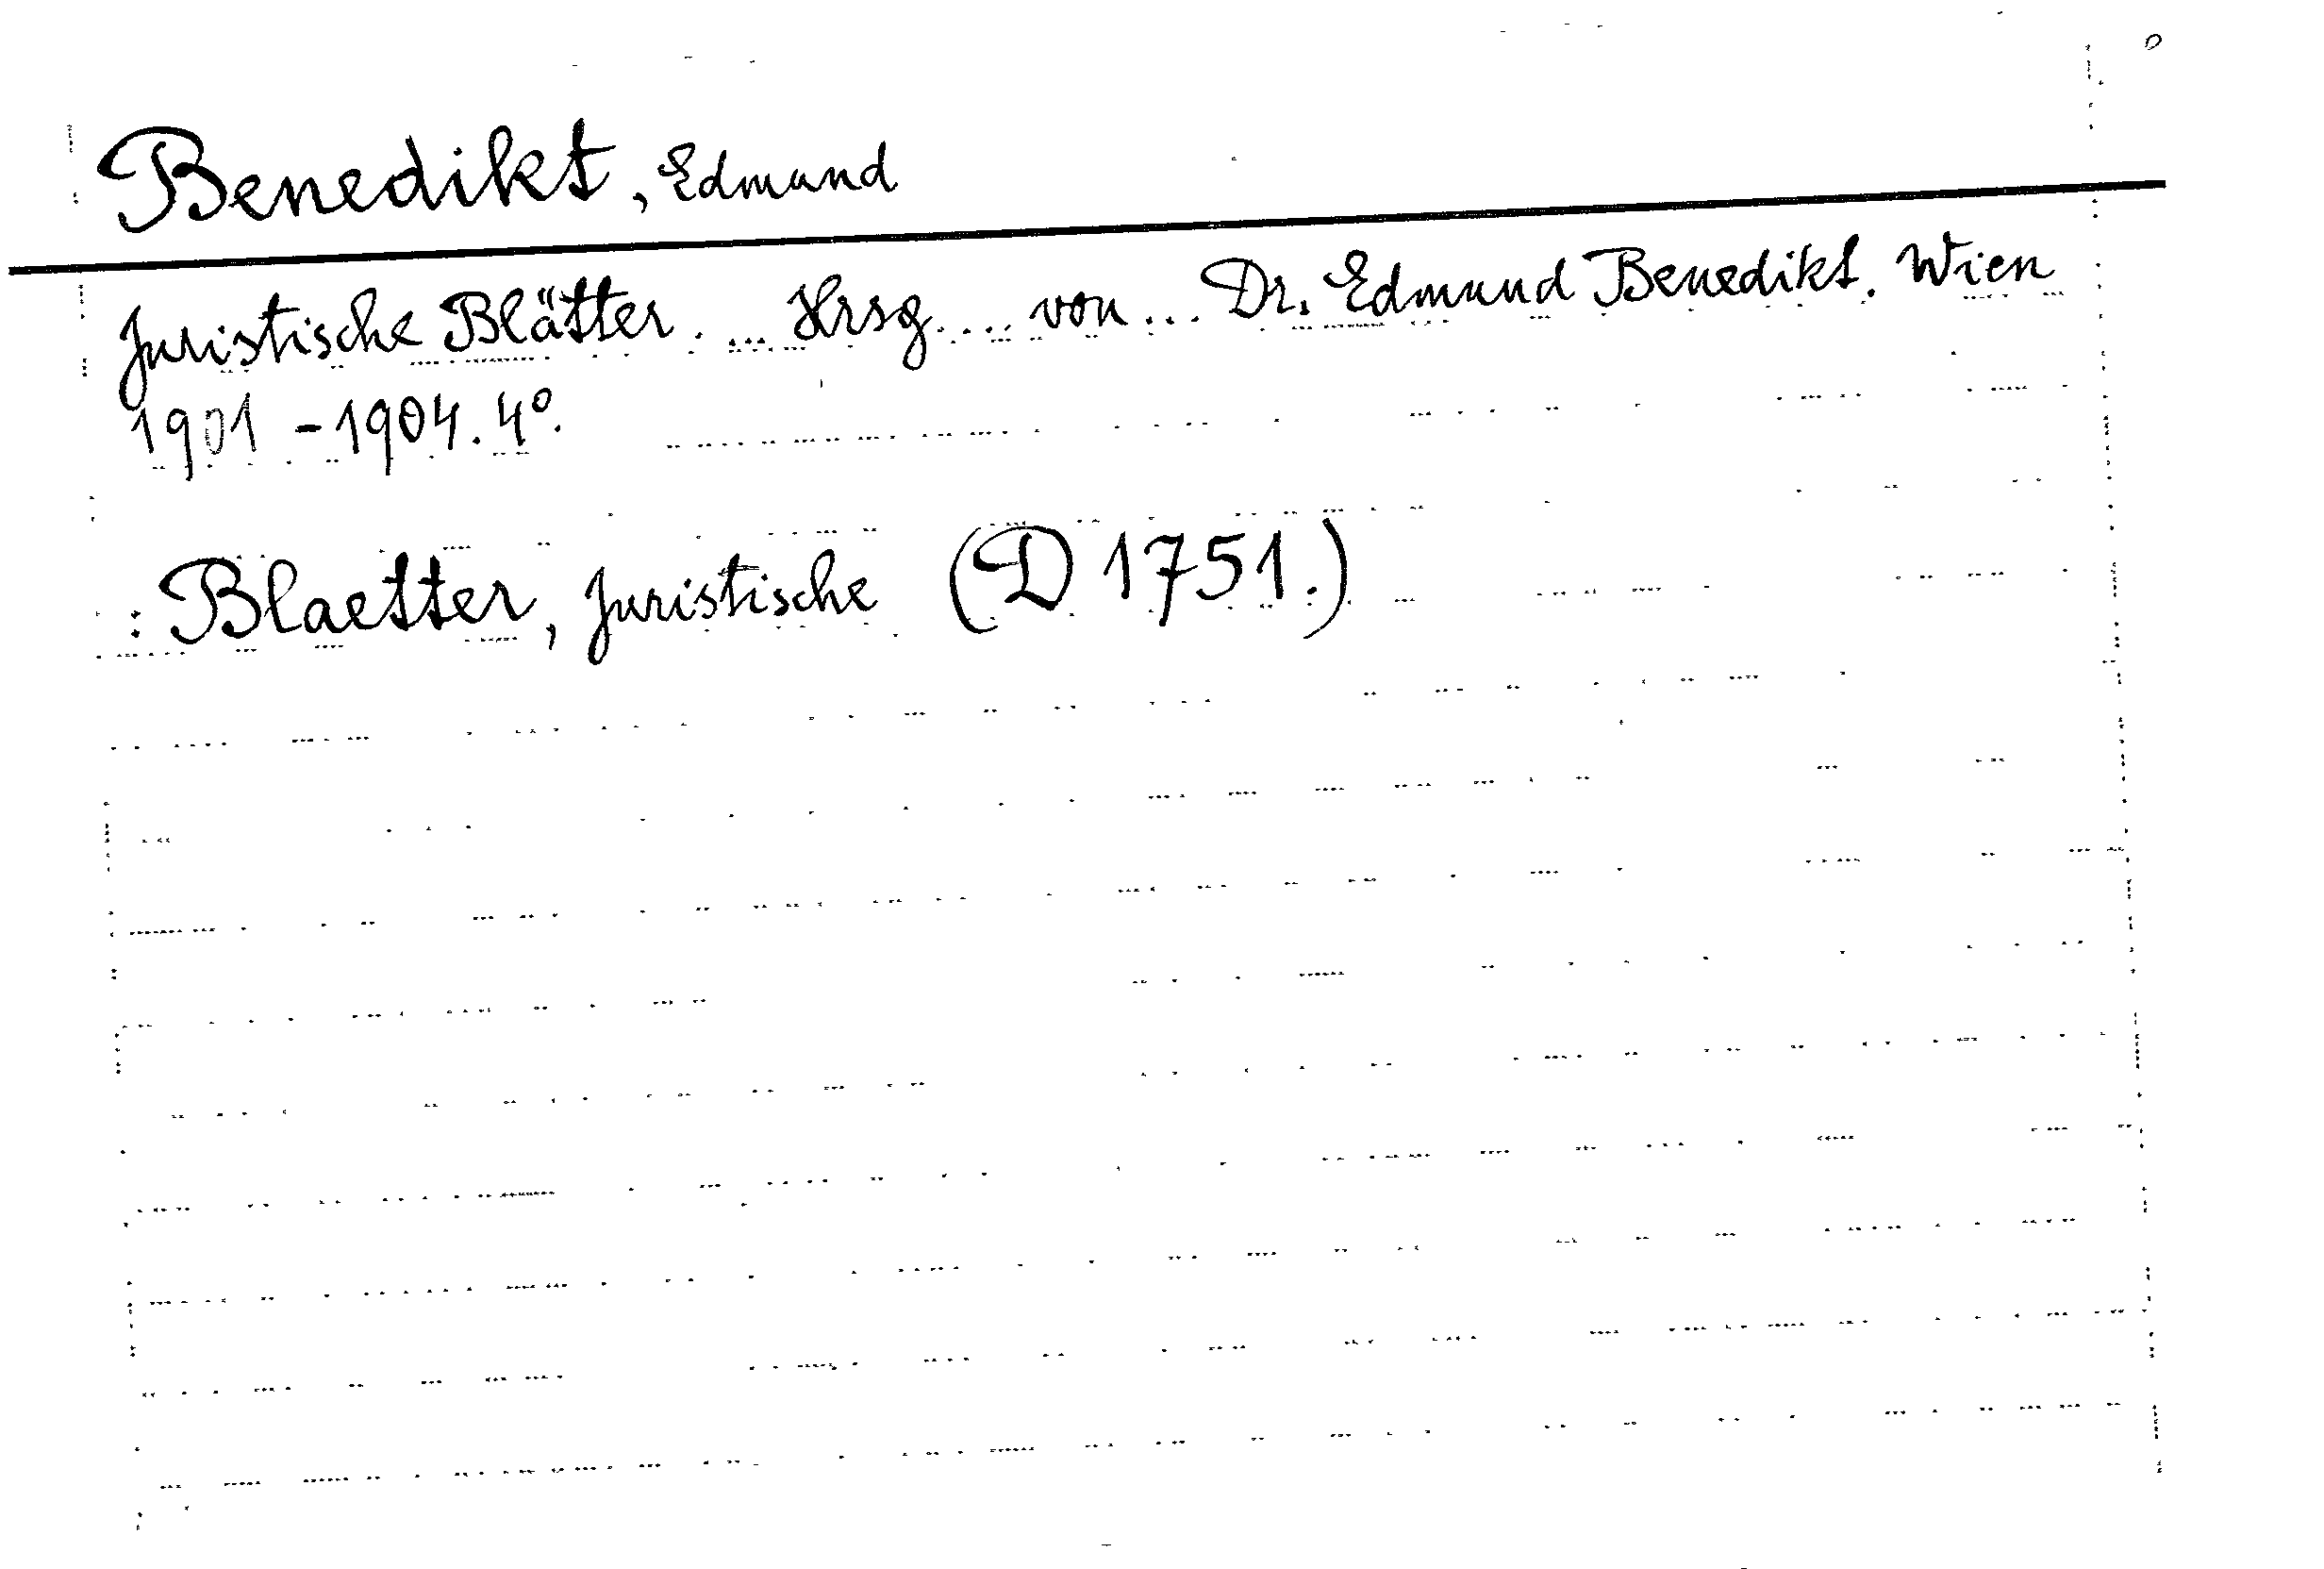 Benedikt, Edmund
Juristische Blätter. ... Hrsg. ... von ... Dr. Edmund Benedikt. Wien
1901-1904. 4°.
: Blaetter, Juristische (D 1751.)